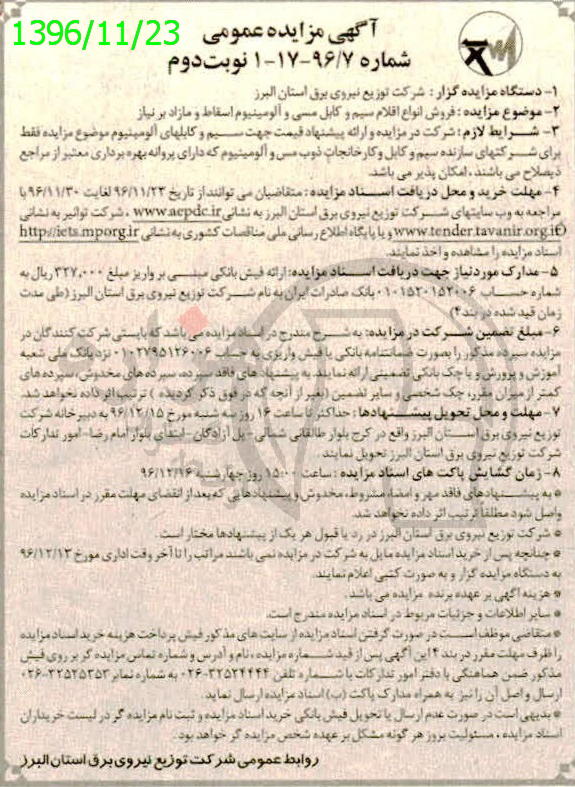 1396/11/23
آگهی مزایده عمومی
شماره ۹۶/۷-۱۷-۱ نوبت دوم
۱- دستگاه مزایده گزار : شرکت توزیع نیروی برق استان البرز
۲- موضوع مزایده : فروش انواع اقلام سیم و کابل مسی و آلومینیوم اسقاط و مازاد بر نیاز
۳- شرایط لازم : شرکت در مزایده و ارائه پیشنهاد قیمت جهت سیم و کابلهای آلومینیوم موضوع مزایده فقط
برای شرکتهای سازنده سیم و کابل و کارخانجات ذوب مس و آلومینیوم که دارای پروانه بهره برداری معتبر از مراجع
ذیصلاح می باشند ، امکان پذیر می باشد.
۴- مهلت خرید و محل دریافت اسناد مزایده : متقاضیان می توانند از تاریخ ۹۶/۱۱/۲۳ لغایت ۹۶/۱۱/۳۰ با
مراجعه به وب سایتهای شرکت توزیع نیروی برق استان البرز به نشانی www.aepdc.ir ، شرکت توانیر به نشانی
www.tender.tavanir.org.ir و یا پایگاه اطلاع رسانی ملی مناقصات کشوری به نشانی http://iets.mporg.ir
اسناد مزایده را مشاهده و اخذ نمایند.
۵- مدارک مورد نیاز جهت دریافت اسناد مزایده: ارائه فیش بانکی مبنی بر واریز مبلغ ۳۲۷,۰۰۰ ریال به
شماره حساب ۰۱۰۱۵۲۰۱۵۲۰۰۶ بانک صادرات ایران به نام شرکت توزیع نیروی برق استان البرز (طی مدت
زمان قید شده در بند ۴)
۶- مبلغ تضمین شرکت در مزایده: به شرح مندرج در اسناد مزایده می باشد که بایستی شرکت کنندگان در
مزایده سپرده مذکور را بصورت ضمانتنامه بانکی یا فیش واریزی به حساب ۰۱۰۲۷۹۵۱۲۶۰۰۶ نزد بانک ملی شعبه
آموزش و پرورش و یا چک بانکی تضمینی ارائه نمایند. به پیشنهاد های فاقد سپرده، سپرده های مخدوش، سپرده های
کمتر از میزان مقرر، چک شخصی و سایر تضمین (بغیر از آنچه که در فوق ذکر گردیده ) ترتیب اثر داده نخواهد شد.
۷- مهلت و محل تحویل پیشنهادها : حداکثر تا ساعت ۱۶ روز سه شنبه مورخ ۹۶/۱۲/۱۵ به دبیرخانه شرکت
توزیع نیروی برق استان البرز واقع در کرج بلوار طالقانی شمالی - پل آزادگان - ابتدای بلوار امام رضا - امور تدارکات
شرکت توزیع نیروی برق استان البرز تحویل نمایند.
۸- زمان گشایش پاکت های اسناد مزایده : ساعت ۱۵:۰۰ روز چهارشنبه ۹۶/۱۲/۱۶
* به پیشنهادهای فاقد مهر و امضا، مشروط، مخدوش و پیشنهادهایی که بعد از انقضای مهلت مقرر در اسناد مزایده
واصل شود مطلقا ترتیب اثر داده نخواهد شد.
* شرکت توزیع نیروی برق استان البرز در رد یا قبول هر یک از پیشنهادها مختار است.
* چنانچه پس از خرید اسناد مزایده مایل به شرکت در مزایده نمی باشند مراتب را تا آخر وقت اداری مورخ ۹۶/۱۲/۱۳
به دستگاه مزایده گزار و به صورت کتبی اعلام نمایند.
* هزینه آگهی بر عهده برنده مزایده می باشد.
* سایر اطلاعات و جزئیات مربوط در اسناد مزایده مندرج است.
* متقاضی موظف است در صورت گرفتن اسناد مزایده از سایت های مذکور فیش پرداخت هزینه خرید اسناد مزایده
را ظرف مهلت مقرر در بند ۴ این آگهی پس از قید شماره مزایده ، نام و آدرس و شماره تماس مزایده گر بر روی فیش
مذکور ضمن هماهنگی با دفتر امور تدارکات با شماره تلفن ۳۲۵۲۴۴۴۴-۰۲۶ به شماره نمابر ۳۲۵۲۵۳۵۳-۰۲۶
ارسال و اصل آن را نیز به همراه مدارک پاکت (ب) اسناد مزایده ارسال نماید.
* بدیهی است در صورت عدم ارسال یا تحویل فیش بانکی خرید اسناد مزایده و ثبت نام مزایده گر در لیست خریداران
اسناد مزایده ، مسئولیت بروز هر گونه مشکل بر عهده شخص مزایده گر خواهد بود.
روابط عمومی شرکت توزیع نیروی برق استان البرز